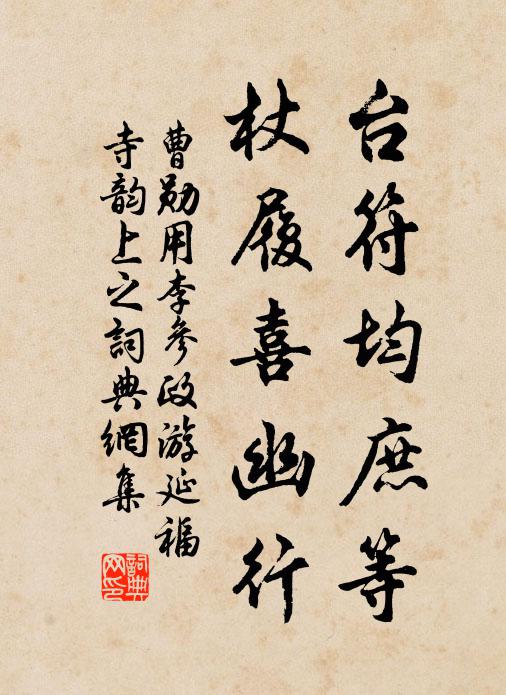 台符均庶等
杖履喜幽行
曹勛用李參政游延福
寺韵上之詞典網集
詞典网印